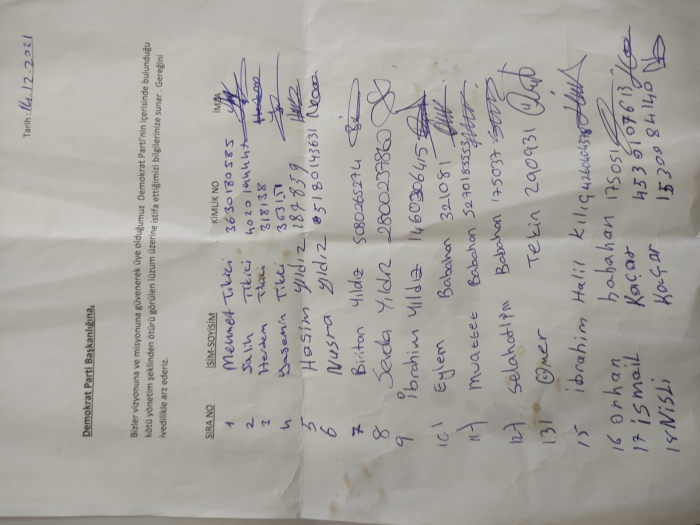 Tarih: 14.12.2021
Demokrat Parti Başkanlığına,
Bizler vizyonuna ve misyonuna güvenerek üye olduğumuz Demokrat Parti'nin içerisinde bulunduğu
kötü yönetim şeklinden ötürü görülen lüzum üzerine istifa ettiğimizi bilgilerinize sunar. Gereğini
ivedilikle arz ederiz.
SIRA NO İSİM-SOYİSİM KİMLİK NO İMZA
1 Mehmet Tikici 3630180585
2 Salih Tikici
3 Tikici 318138
4 Yasemin Tikici 363151
5 Haşim Yıldız 187859
6 Nusra Yıldız 5180143631
7 Biritan Yıldız 5080265274
8 Seda Yıldız 2800237860
9 İbrahim Yıldız 1460306415
10) Eylem Babahan 321081
11) Muattet Babahan
12) Selahattin Babahan 175077
13) Ömer Tekin 290931
15 İbrahim Halil Kılıç
16 Orhan babahan 175051
17 İsmail Kaçar 4536107613
18 Nisli Kaçar 1530984140